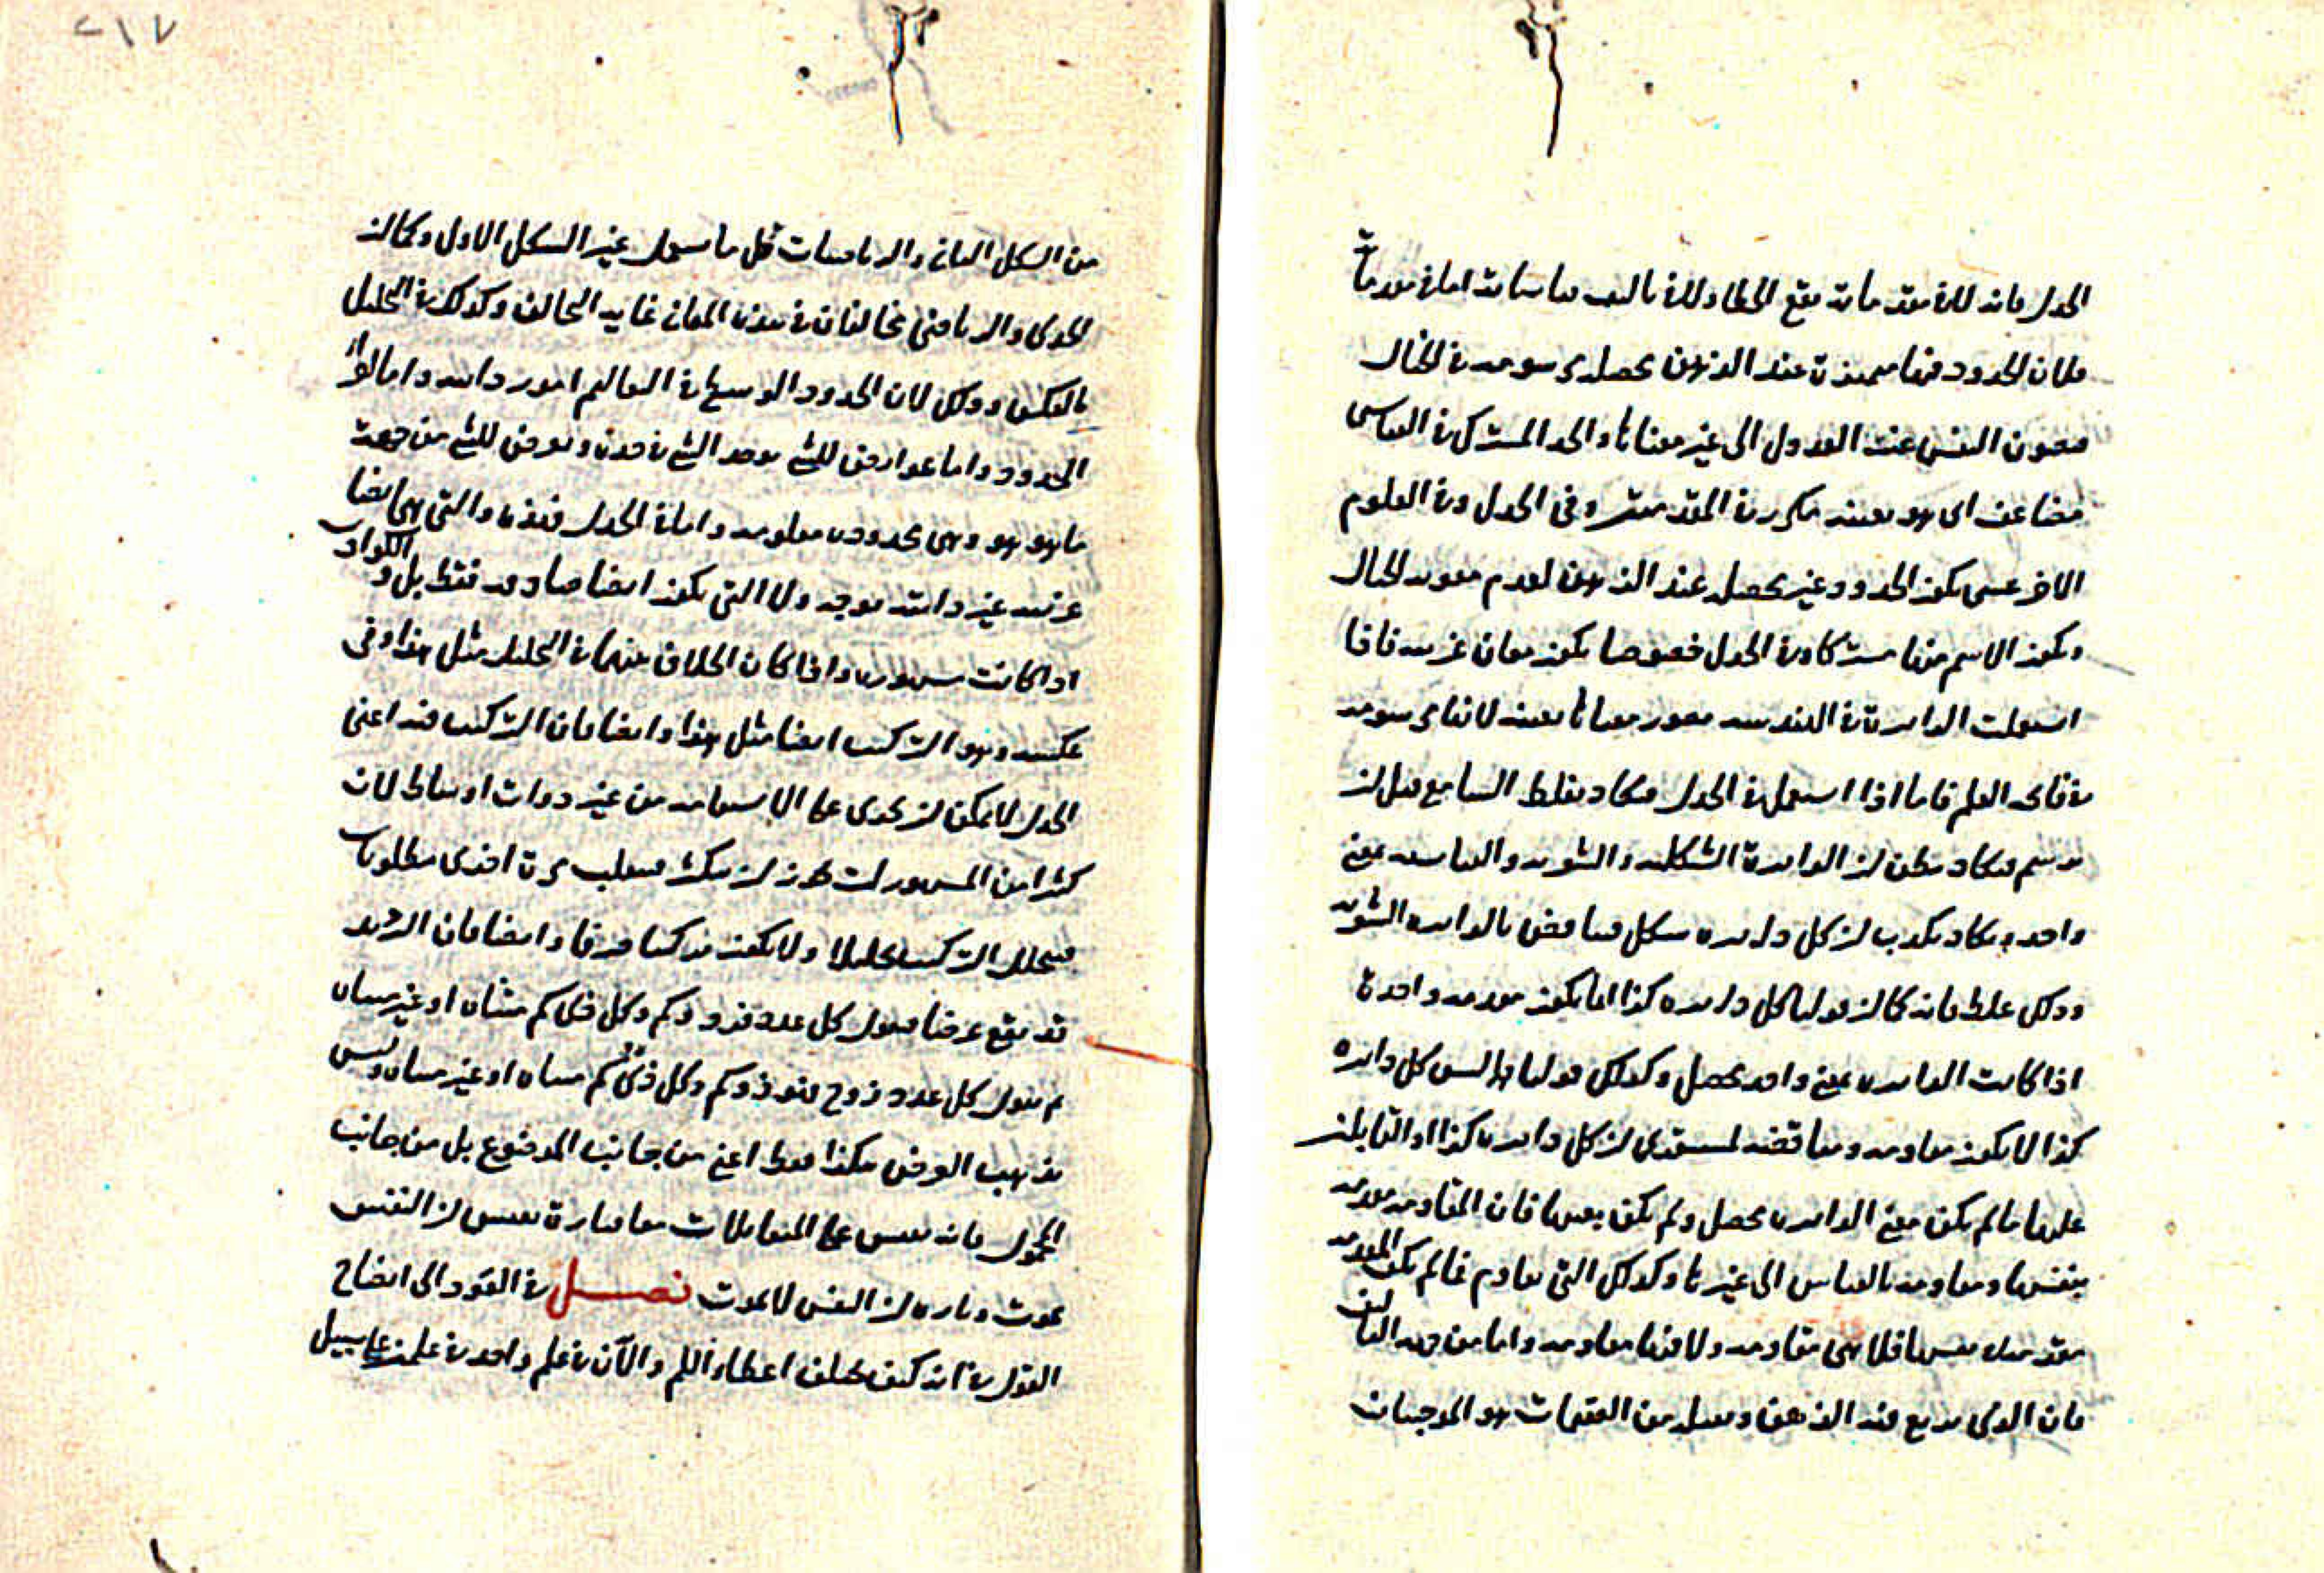 الجدل فانه للا مقدماته يقع الخطا وللا تاليف قياساته اما مقدماته
فلان الحدود فيها متميزة عند الذهن يحصل في الخيال
النفس عند العدول الى غير معناها والحد المشترك في القياس
مضاعف اى هو بعينه مكرر في المقدمتين وفى الجدل وفى العلوم
الاخر عسى يكون الحدود غير يحصل عند الذهن لعدم معونه الخيال
ويكون الاسم فيها مشتركا وفى الجدل خصوصا يكون معان غريبه فاذا
استعملت الدايرة فى الهندسه معناها بعينه لانها مرسومه
فى فاتحه العلم فاما اذا استعمل فى الجدل فيكاد يغلط السامع قبل ان
يرسم فيكاد يظن ان الدايرة الشكليه والشعريه والقياسيه بمعنى
واحد ويكاد يكذب ان كل دايره شكل فيناقض بالدايره الشعريه
وذلك غلط فانه كما ان قولنا كل دايره كذا انما يكون مقدمه واحدة
اذا كانت الدايره بمعنى واحد يحصل وكذلك قولنا ليس كل دايره
كذا لا يكون مقاومه ومناقضه لمستقرى ان كل دايره كذا او القايل ان
عليها ما لم يكن معنى الدايره يحصل ولم يكن بعينها فان المقاومه مقدمه
بنفسها ومقاومه بالقياس الى غيرها وكذلك التى تقاوم فما لم يكن المقدمه
مقدمه بنفسها فلا هى مقاومه ولا فيها مقاومه واما من جهه التاليف
فان الذى فيه الذهن من العقيمات هو الموجبات
٢١٧
من الشكل الثانى والرياضيات قل ما يستعمل غير الشكل الاول وكما ان
الجدلى والرياضى يخالفان فى هذه المعانى غايه التخالف وكذلك فى التحليل
بالعكس وذلك لان الحدود الوسطى فى التعاليم امور ذاتيه واما لوازم
الحدود واما عوارض للشى يوجد الشى فى حده ويعرض للشى من جهت
ما هو هو وهى محدوده معلومه واما فى الجدل فهذه والتى هى ايضا
عرضيه غير ذاتيه يوجد ولا التى يكون ايضا صادقه فقط بل والكواذب
اذا كانت مشهوره واذا كان الخلاف بينهما فى التحليل مثل هذا وفى
عكسه وهو التركيب ايضا مثل هذا وايضا فان التركيب فيه اعنى
الجدل لا يمكن ان يجرى على الاستقامه من غير ذوات اوساط لان
كثيرا من المشهورات يجوز ان يكثر فيطلب مرة اخرى مطلوبات
فيتخلل التركيب تحليلا ولا يكون تركيبا صرفا وايضا فان التزيد
قد يقع عرضا فيقول كل عدد فرد ذو كم وكل ذى كم متناه او غير متناه
ثم يقول كل عدد زوج فهو ذو كم وكل ذى كم متناه او غير متناه وليس
يذهب العرض هكذا فقط اعنى من جانب الموضوع بل من جانب
المحمول فانه يقيس على المتقابلات معا فتارة يقيس ان النفس
يموت وتاره ان النفس لا يموت فصل فى العود الى ايضاح
القول فى انه كيف يختلف اعطاء اللم والان فى علم واحد وفى علمين على سبيل